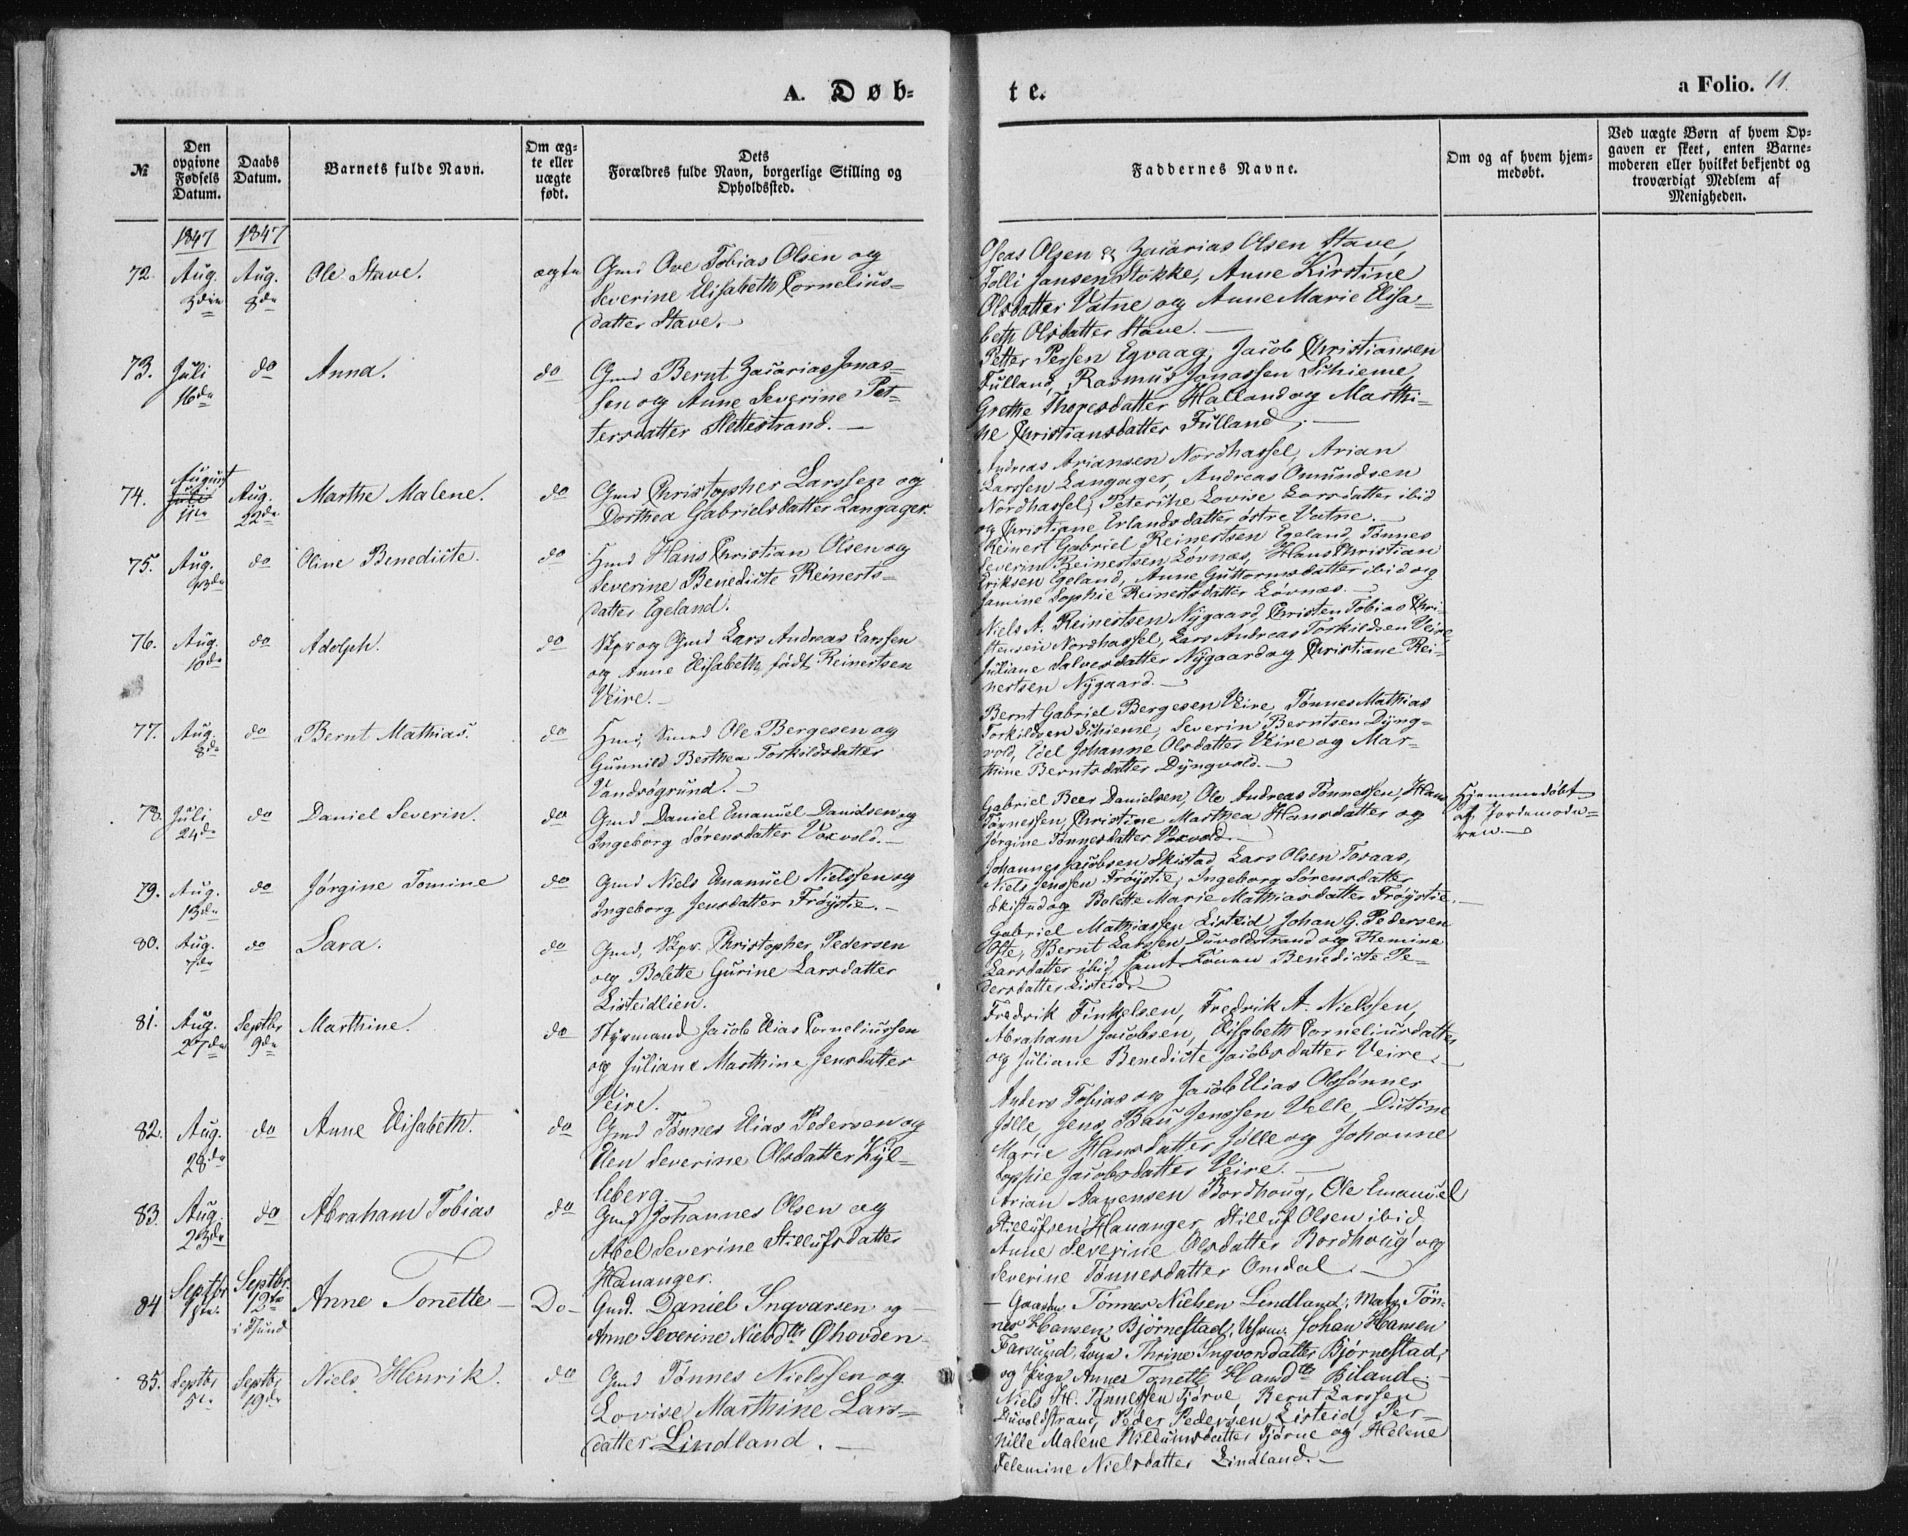 A. Døb-
te.
a Folio. 11.
№
Den opgivne Fødsels Datum.
Daabs Datum.
Barnets fulde Navn.
Om æg-
te eller
uægte
født.
Dets
Forældres fulde Navn, borgerlige Stilling og
Opholdssted.
Faddernes Navne.
Om og af hvem hjem-
medøbt.
Ved uægte Børn af hvem Op-
gaven er skeet, enten Barne-
moderen eller hvilket bekjendt og
troværdigt Medlem af
Menigheden.
1847 1847
72. Aug. Aug. 8de Ole Stave. ægte
Gmd Ove Tobias Olsen og
Severine Elisabeth Cornelius-
datter Stave.
Oseas Olsen & Zacarias Olsen Stave,
Tolli Jansen Stokke, Anne Kirstine
Olsdatter Vatne og Anne Marie Elisa-
beth Olsdatter Stave.
73. Juli 16de do Anna. do
Gmd Bernt Zacarias Jonas-
sen og Anne Severine Pet-
tersdatter Slettestrand.
Petter Persen Egvaag, Jacob Christiansen
Fulland, Rasmus Jonassen Schieme,
Grethe Thoresdatter Halland og Marthi-
ne Christiansdatter Fulland.
74. August Juli 11te Aug. 22de Marthe Malene. do
Gmd Christopher Larssen og
Dorthea Gabrielsdatter Langager.
Andreas Ariansen Nordhassel, Arian
Larssen Langager, Andreas Omundsen
Nordhassel, Peterike Lovise Larsdatter ibid
og Christiane Erlandsdatter østre Vatne.
75. Aug. do Oline Benedicte. do
Hmd Hans Christian Olsen og
Severine Benedicte Reinerts-
datter Egeland.
Reinert Gabriel Reinertsen Egeland, Tønnes
Severin Reinertsen Løvnæs, Hans Christian
Eriksen Egeland, Anne Guttormsdatter ibid og
Samine Sophie Reinertsdatter Løvnæs.
76. Aug. 10de do Adolph. do
Skpr og Gmd Lars Andreas Larssen
og Anne Elisabeth født Reinertsen
Veire.
Niels A. Reinertsen Nygaard, Christen Tobias Chri-
stensen Nordhassel, Lars Andreas Torkildsen Veire,
Juliane Salvesdatter Nygaard og Christiane Rei-
nertsen Nygaard.
77. Aug. 8de do Bernt Mathias. do
Hmd, Smed Ole Bergesen og
Gunnild Berthea Torkildsdatter
Vandsøgrund.
Bernt Gabriel Bergesen Veire, Tønnes Mathias
Torkildsen Schieme, Severin Berntsen Dyng-
vold, Edel Johanne Olsdatter Veire og Mar-
thine Berntsdatter Dyngvold.
78. Juli 24de do Daniel Severin. do
Gmd Daniel Emanuel Danielsen og
Ingeborg Sørensdatter Voxvold.
Gabriel Beer Danielsen, Ole Andreas Tønnessen, Hans
Tønnessen, Christine Marthea Hansdatter og
Jørgine Tønnesdatter Voxvold.
Hjemmedøbt
af Jordemode-
ren.
79. Aug. 13de do Jørgine Tomine do
Gmd Niels Emanuel Nielssen og
Ingeborg Jensdatter Frøystie.
Johannes Jacobsen Skistad, Lars Olsen Tosaas,
Niels Jenssen Frøystie, Ingeborg Sørensdatter
Skistad og Bolette Marie Mathiasdatter Frøystie.
80. Aug. 7de do Sara. do
Gmd, Skpr. Christopher Pedersen
og Bolette Gurine Larsdatter
Listeidlien.
Gabriel Mathiassen Listeid, Johan G. Pedersen
Ofte, Bernt Larssen Duvoldstrand og Remine
Larsdatter ibid samt Benedicte Pe-
dersdatter Listeid.
81. Aug. 27de Septbr 9de Marthine. do
Styrmand Jacob Elias Corneliussen
og Juliane Marthine Jensdatter
Veire.
Fredrik Finkelsen, Fredrik A. Nielssen,
Abraham Jacobsen, Elisabeth Corneliusdatter
og Juliane Benedicte Jacobsdatter Veire.
82. Aug. 28de do Anne Elisabeth. do
Gmd Tønnes Elias Pedersen og
Elen Severine Olsdatter Kyl-
leberg.
Anders Tobias og Jacob Elias Olssønner
Jølle, Jens Bau Jenssen Velle,
Marie Hansdatter Jølle og Johanne
Sophie Jacobsdatter Veire.
83. Aug. 23de do Abraham Tobias do
Gmd Johannes Olsen og
Abel Severine Stillufsdatter
Hananger.
Arian Aanensen Bordhoug, Ole Emanuel
Stillufsen Hananger, Stilluf Olsen ibid
Anne Severine Olsdatter Bordhoug og
Severine Tønnesdatter Omdal.
84 Septbr 1ste. Septbr. 12te i Sund Anne Tonette Do
Gmd. Daniel Ingvarsen og
Anne Severine Nielsdtr Øhovden
Tønnes Nielsen Lindland, Matr. Tøn-
nes Hansen Bjørnestad, Johan Hansen
Farsund, Thrine Ingvorsdatter Bjørnestad,
og Pigen Anne Tonette Hansdtr Biland.
85. Septbr 5te Septbr 19de Niels Henrik. do
Gmd Tønnes Nielssen og
Lovise Marthine Lars-
datter Lindland.
Niels H. Tønnessen Tjørve, Bernt Larssen
Duvoldstrand, Peder Pedersen Listeid, Per-
nille Malene Villumsdatter Tjørve og Helene
Telemine Nielsdatter Lindland.